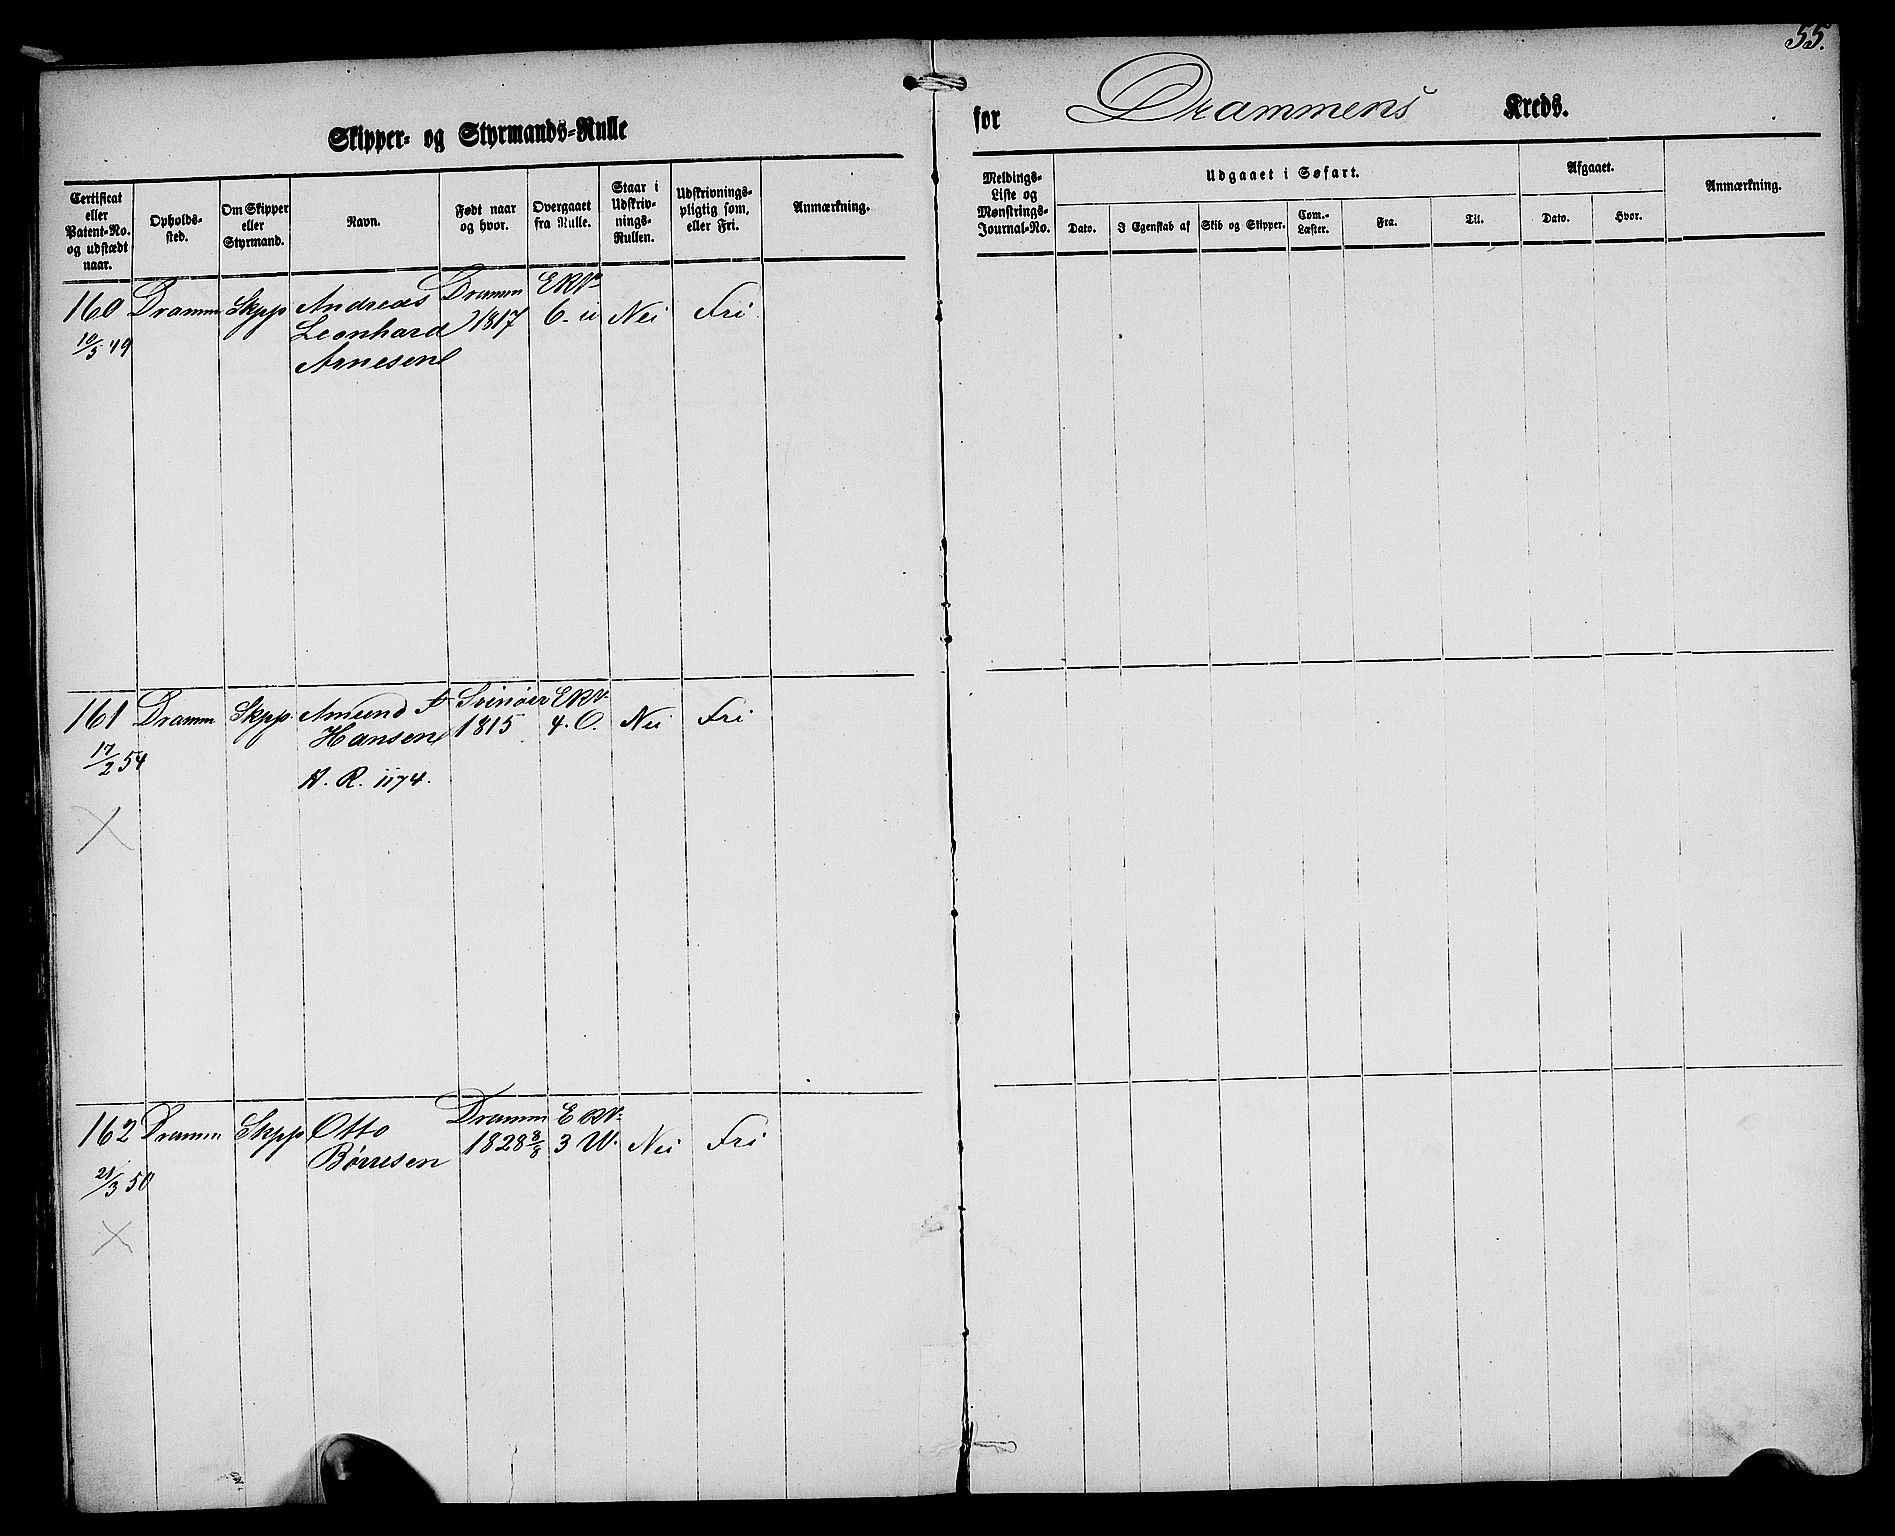 55.
Skipper- og Styrmands-Rulle
for Drammens Kreds.
Certificat eller Patent-No. og udstædt naar.
Opholds-sted.
Om Skipper eller Styrmand.
Navn.
Født naar og hvor.
Overgaaet fra Rulle.
Staar i Udskriv-nings-Rullen.
Udskrivnings-pligtig som, eller Fri.
Anmærkning.
Meldings-Liste og Mønstrings-Journal-No.
Udgaaet i Søfart.
Dato.
I Egenskab af
Skib og Skipper.
Com.-Læster.
Fra.
Til.
Afgaaet.
Dato.
Hvor.
Anmærkning.
160 Dramm Skpp Andreas Dramm
Leonhard 1817 6- Nei Fri
10/5 49 Arnesen
161 Dramm Skpp. Amund
Hansen 1815 4. O. Nei Fri
17/2 54
A. R. 1174.
162 Dramm Skpp Otto Dramm
Børresen 1828 8/8 3 W. Nei Fri
21/3 50